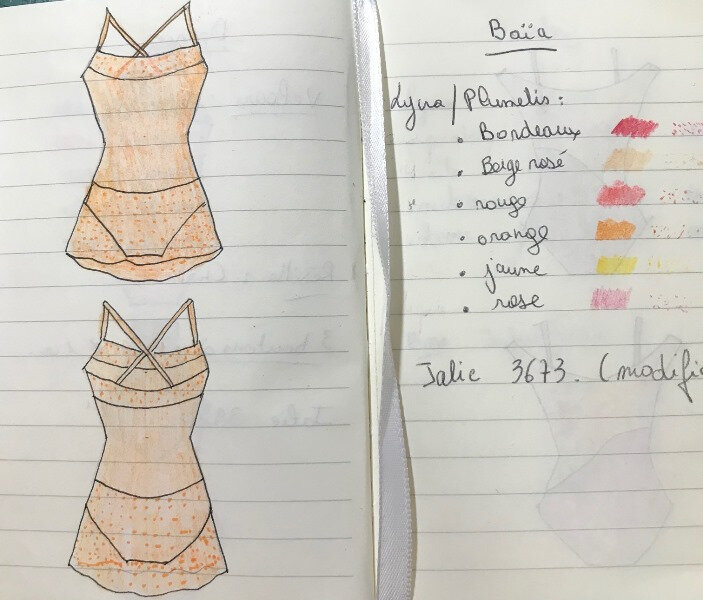 Baïa
Lycra / Plumetis :
• Bordeaux
• Beige rosé
• rouge
• orange
• jaune
• rose
Jalie 3673. (modifié